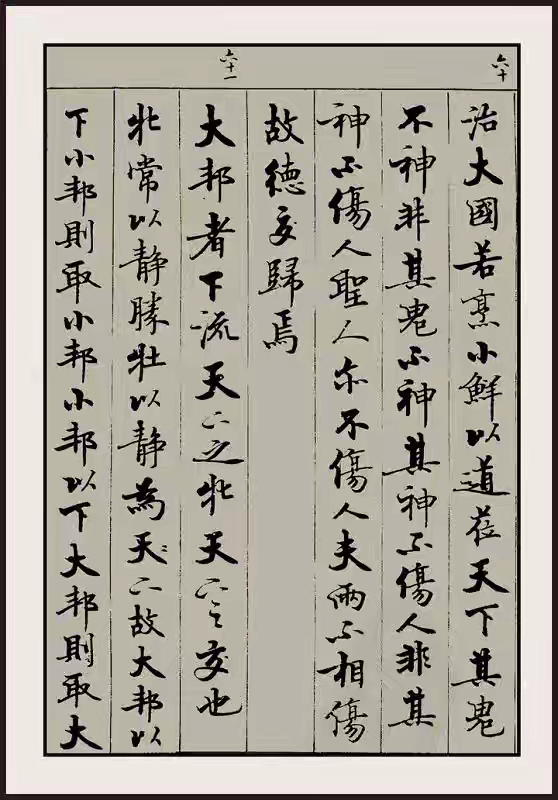 六十
治大國若烹小鮮以道莅天下其鬼
不神非其鬼不神其神不傷人非其
神不傷人聖人亦不傷人夫兩不相傷
故德交歸焉
六十一
大邦者下流天下之牝天下之交也
牝常以靜勝牡以靜為天下故大邦以
下小邦則取小邦小邦以下大邦則取大